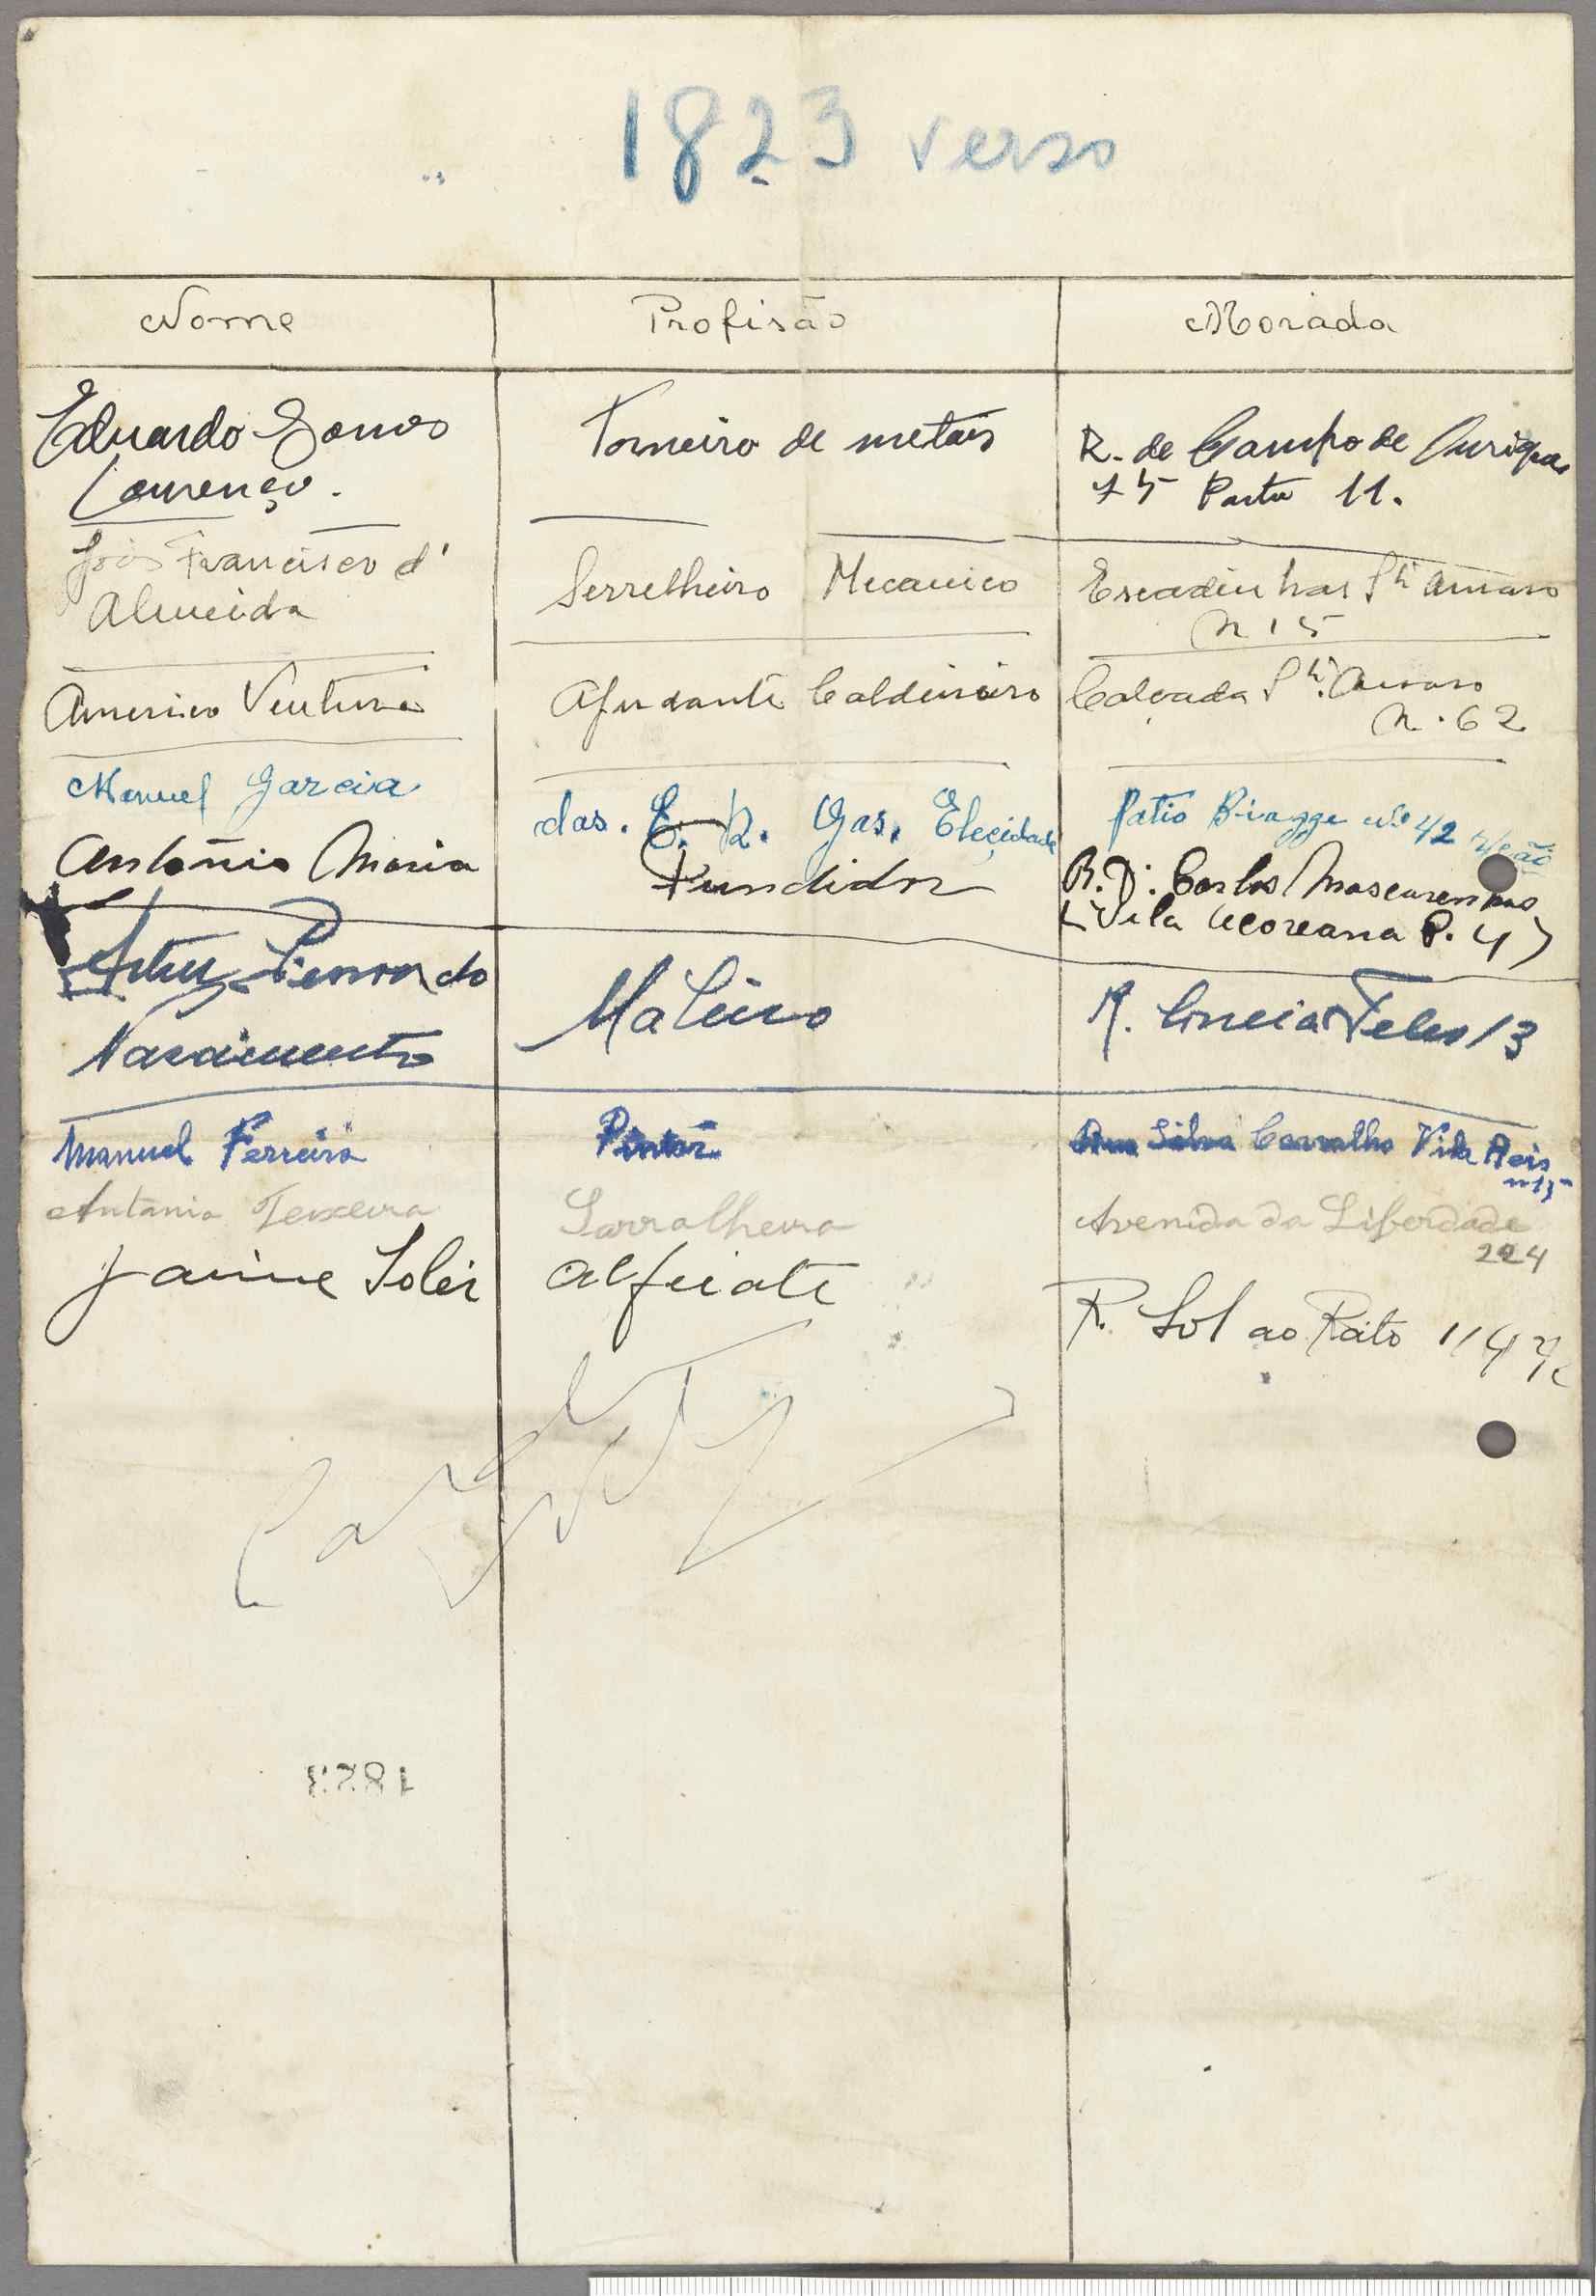 1823 verso
Nome Profisão Morada
Eduardo Gomes Torneiro de metais R. de Campo de Ourique
Lourenço. 75 Porta 11.
João Francisco d' Serrelheiro Mecanico Escadinhas Sto Amaro
Almeida n 15
Americo Ventura Ajudante Caldeireiro Calçada Sto. Amaro
n. 62
Manuel Garcia das. C. R. Gas. Eleçidade Patio Biagge nº 42
António Maria Fundidor R. D. Carlos Mascarenhas
Vila Açoreana P. 47
Artur do
Nascimento R. Teles 13
Manuel Ferreira Pintor Rua Silva Carvalho Vila Reis
n 15
Antonio Teixeira Sarralheiro Avenida da Liberdade
224
Jaime Soler Alfeiate
R. Sol ao Rato 114
1823